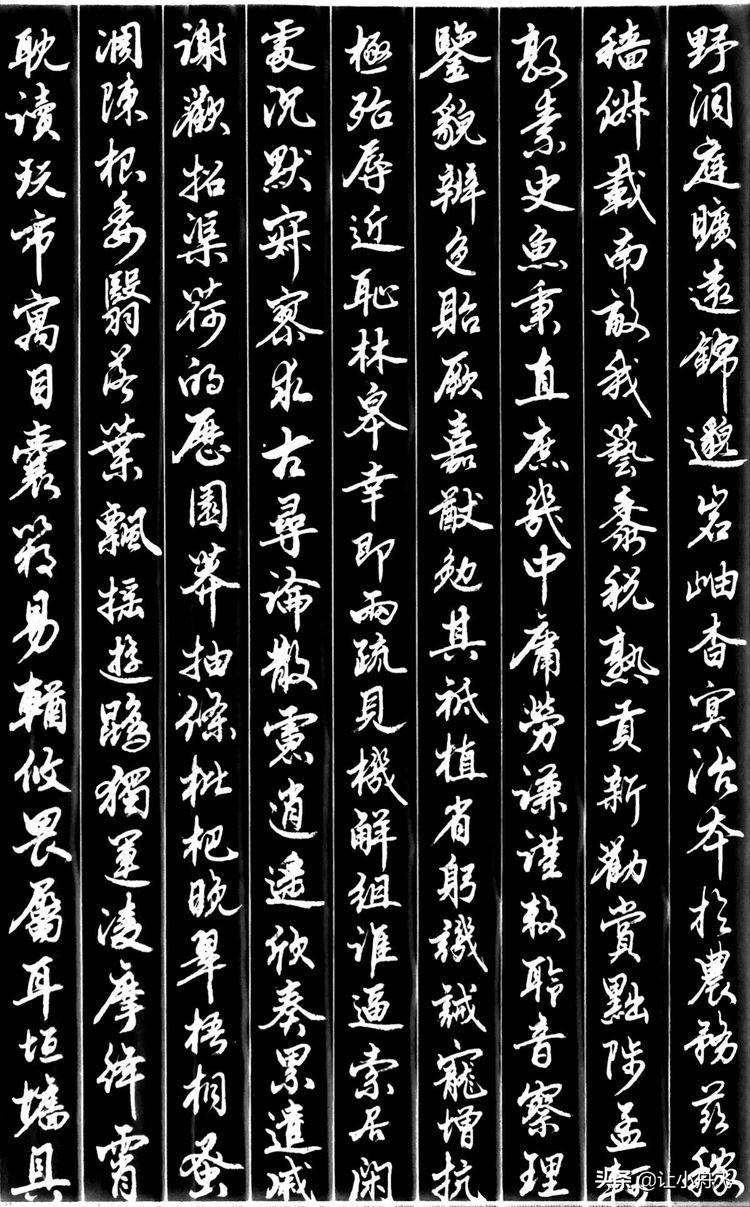 野洞庭曠遠錦邈岩岫杳冥治本於農務茲稼
穡俶載南畝我藝黍税熟貢新勸賞黜陟孟軻
敦素史魚秉直庶幾中庸勞謙謹敕聆音察理
鑒貌辨色貽厥嘉猷勉其祗植省躬譏誡寵增抗
極殆辱近恥林皋幸即兩疏見機解組誰逼索居閑
處沉默寂寥求古尋論散慮逍遙欣奏累遣慼
謝歡招渠荷的歷園莽抽條枇杷晚翠梧桐蚤
凋陳根委翳落葉飄搖遊鵾獨運凌摩絳霄
耽讀玩市寓目囊箱易輶攸畏屬耳垣墻具
头条@让小舟